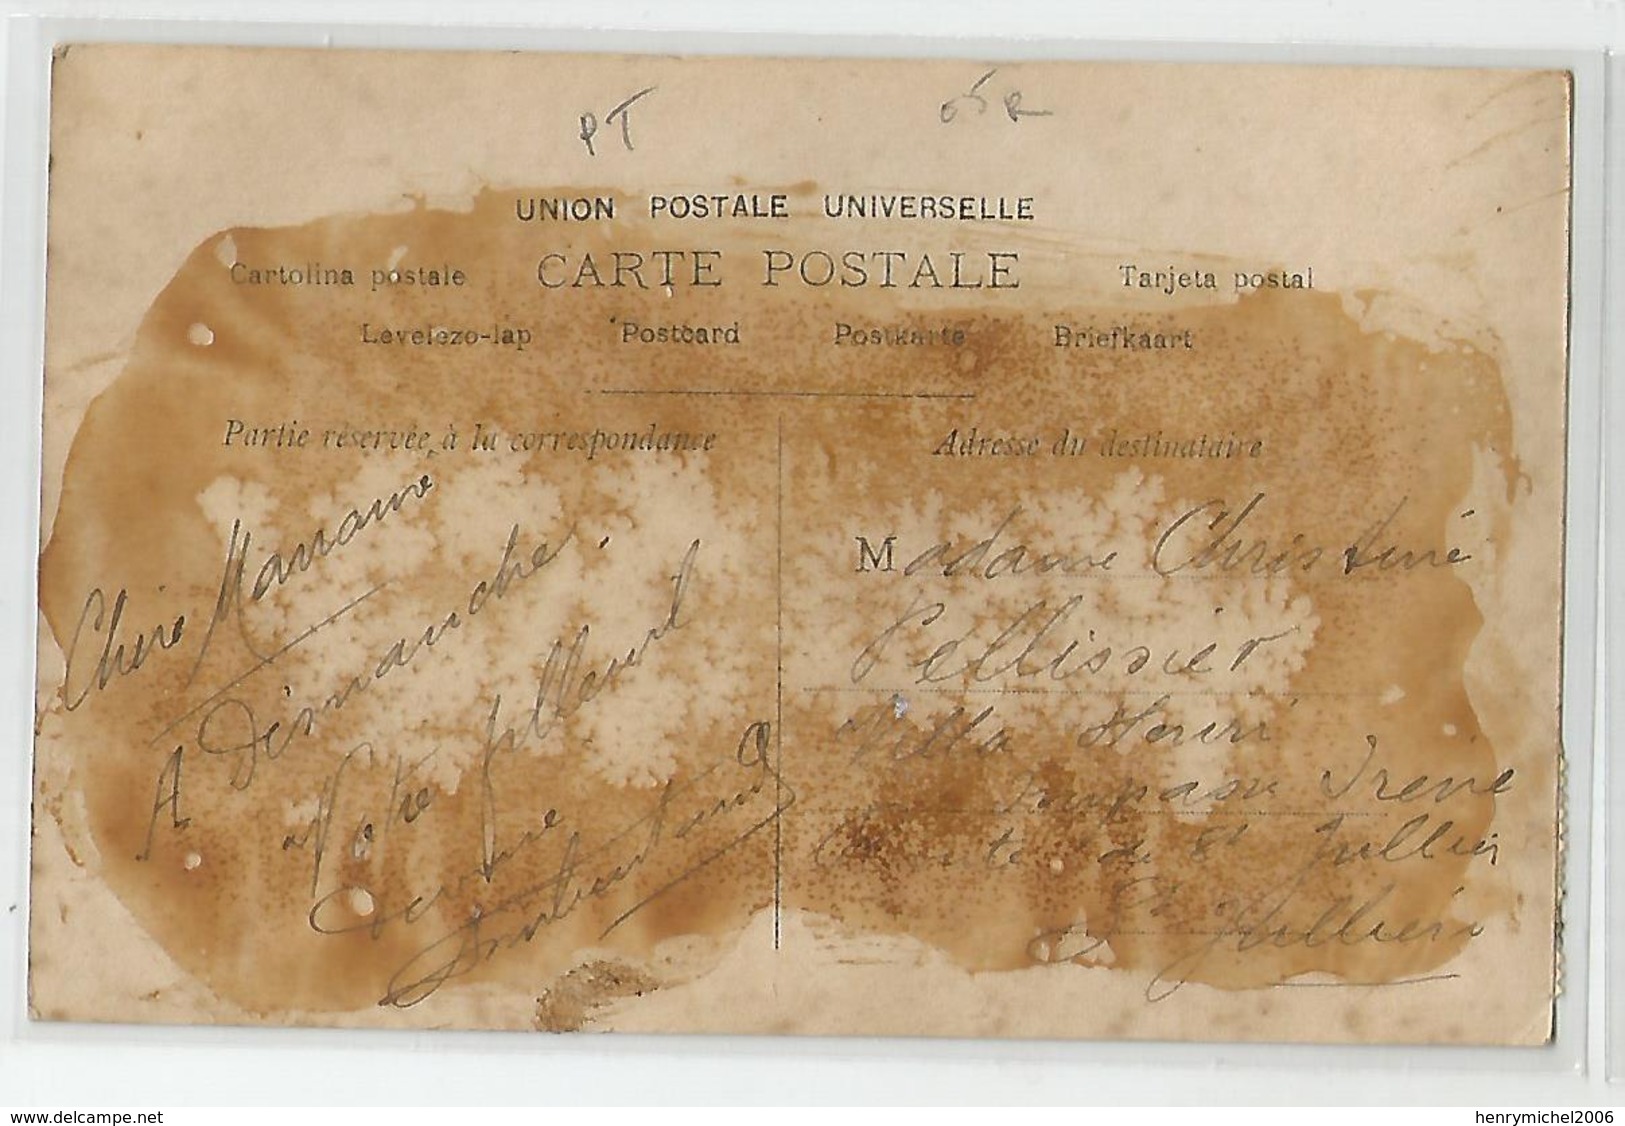 PT
UNION POSTALE UNIVERSELLE
Cartolina postale CARTE POSTALE Tarjeta postal
Levelezo-lap Postcard Postkarte Briefkaart
Partie réservée à la correspondance
Chère Marraine
A Dimanche.
Votre filleul
Adresse du destinataire
Madame Christine
Pellissier
Villa Henri
Impasse Irène
Route de St Jullien
St Jullien
www.delcampe.net
henrymichel2006